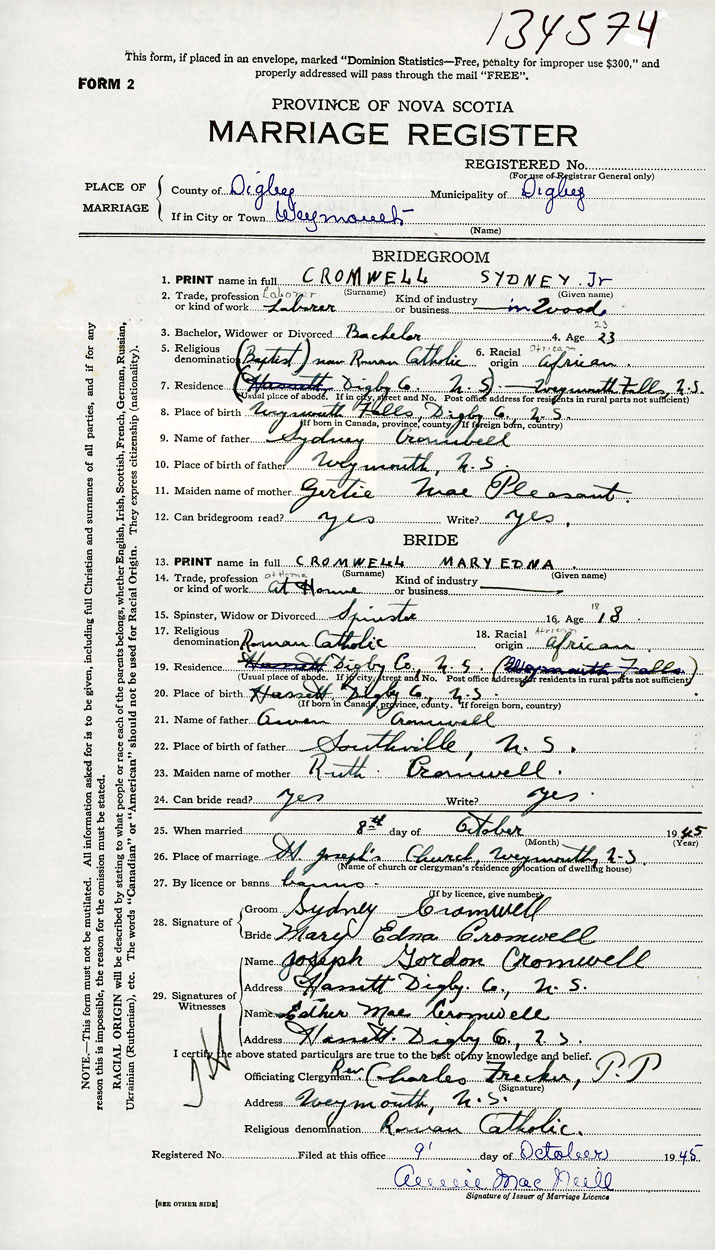 134574
This form, if placed in an envelope, marked "Dominion Statistics—Free, penalty for improper use $300," and
properly addressed will pass through the mail "FREE".
FORM 2
PROVINCE OF NOVA SCOTIA
MARRIAGE REGISTER
REGISTERED No.
(For use of Registrar General only)
PLACE OF MARRIAGE
County of Digby Municipality of Digby
If in City or Town Weymouth
(Name)
BRIDEGROOM
1. PRINT name in full CROMWELL SYDNEY Jr
(Surname) (Given name)
2. Trade, profession or kind of work Laborer Laborer Kind of industry or business in Woods
3. Bachelor, Widower or Divorced Bachelor 4. Age 23 23
5. Religious denomination (Baptist) now Roman Catholic 6. Racial origin African African
7. Residence (Hassett, Digby Co. N.S.) — Weymouth Falls, N.S.
(Usual place of abode. If in city, street and No. Post office address for residents in rural parts not sufficient)
8. Place of birth Weymouth Falls, Digby Co. N.S.
(If born in Canada, province, county. If foreign born, country)
9. Name of father Sydney Cromwell
10. Place of birth of father Weymouth, N.S.
11. Maiden name of mother Gertie Mae Pleasant.
12. Can bridegroom read? yes Write? yes.
BRIDE
13. PRINT name in full CROMWELL MARY EDNA
(Surname) (Given name)
14. Trade, profession or kind of work at Home at Home Kind of industry or business
15. Spinster, Widow or Divorced Spinster 16. Age 18 18
17. Religious denomination Roman Catholic 18. Racial origin African African
19. Residence Hassett Digby Co, N.S. (Weymouth Falls)
(Usual place of abode. If in city, street and No. Post office address for residents in rural parts not sufficient)
20. Place of birth Hassett Digby Co., N.S.
(If born in Canada, province, county. If foreign born, country)
21. Name of father Owen Cromwell
22. Place of birth of father Southville, N.S.
23. Maiden name of mother Ruth Cromwell.
24. Can bride read? yes Write? yes.
25. When married 8th day of October 1945
(Month) (Year)
26. Place of marriage St. Joseph's Church, Weymouth, N.S.
(Name of church or clergyman's residence or location of dwelling house)
27. By licence or banns banns.
(If by licence, give number)
28. Signature of
Groom Sydney Cromwell
Bride Mary Edna Cromwell
29. Signatures of Witnesses
Name Joseph Gordon Cromwell
Address Hassett Digby. Co., N.S.
Name Esther Mae Cromwell
Address Hassett. Digby Co, N.S.
I certify the above stated particulars are true to the best of my knowledge and belief.
Officiating Clergyman Rev. Charles Frecker, P.P
(Signature)
Address Weymouth, N.S.
Religious denomination Roman Catholic.
Registered No. Filed at this office 9 day of October 1945
Annie Mac Neill
Signature of Issuer of Marriage Licence
[SEE OTHER SIDE]
NOTE.—This form must not be mutilated. All information asked for is to be given, including full Christian and surnames of all parties, and if for any
reason this is impossible, the reason for the omission must be stated.
RACIAL ORIGIN will be described by stating to what people or race each of the parents belongs, whether English, Irish, Scottish, French, German, Russian,
Ukrainian (Ruthenian), etc. The words "Canadian" or "American" should not be used for Racial Origin. They express citizenship (nationality).